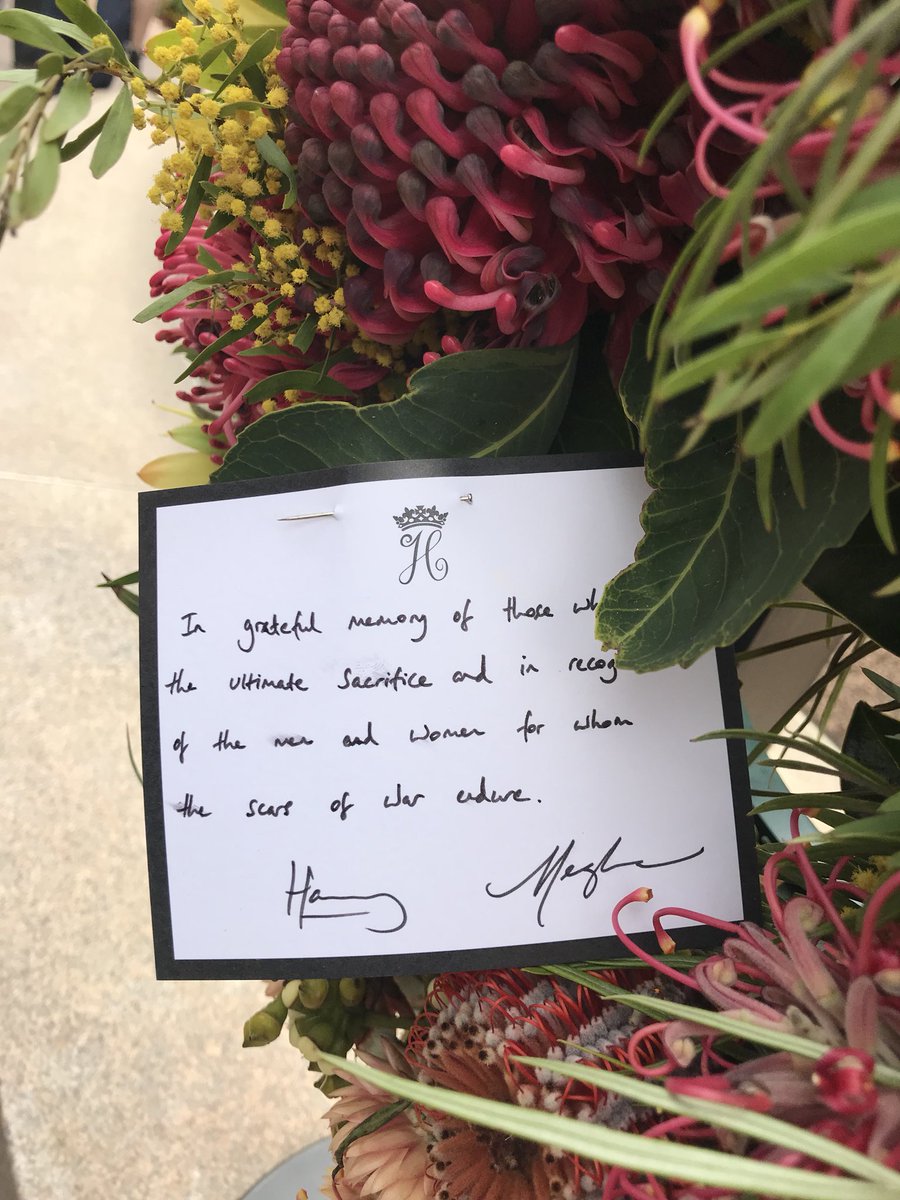 H
In grateful memory of those
the ultimate sacrifice and in
of the men and women for whom
the scars of war endure.
Harry Meghan